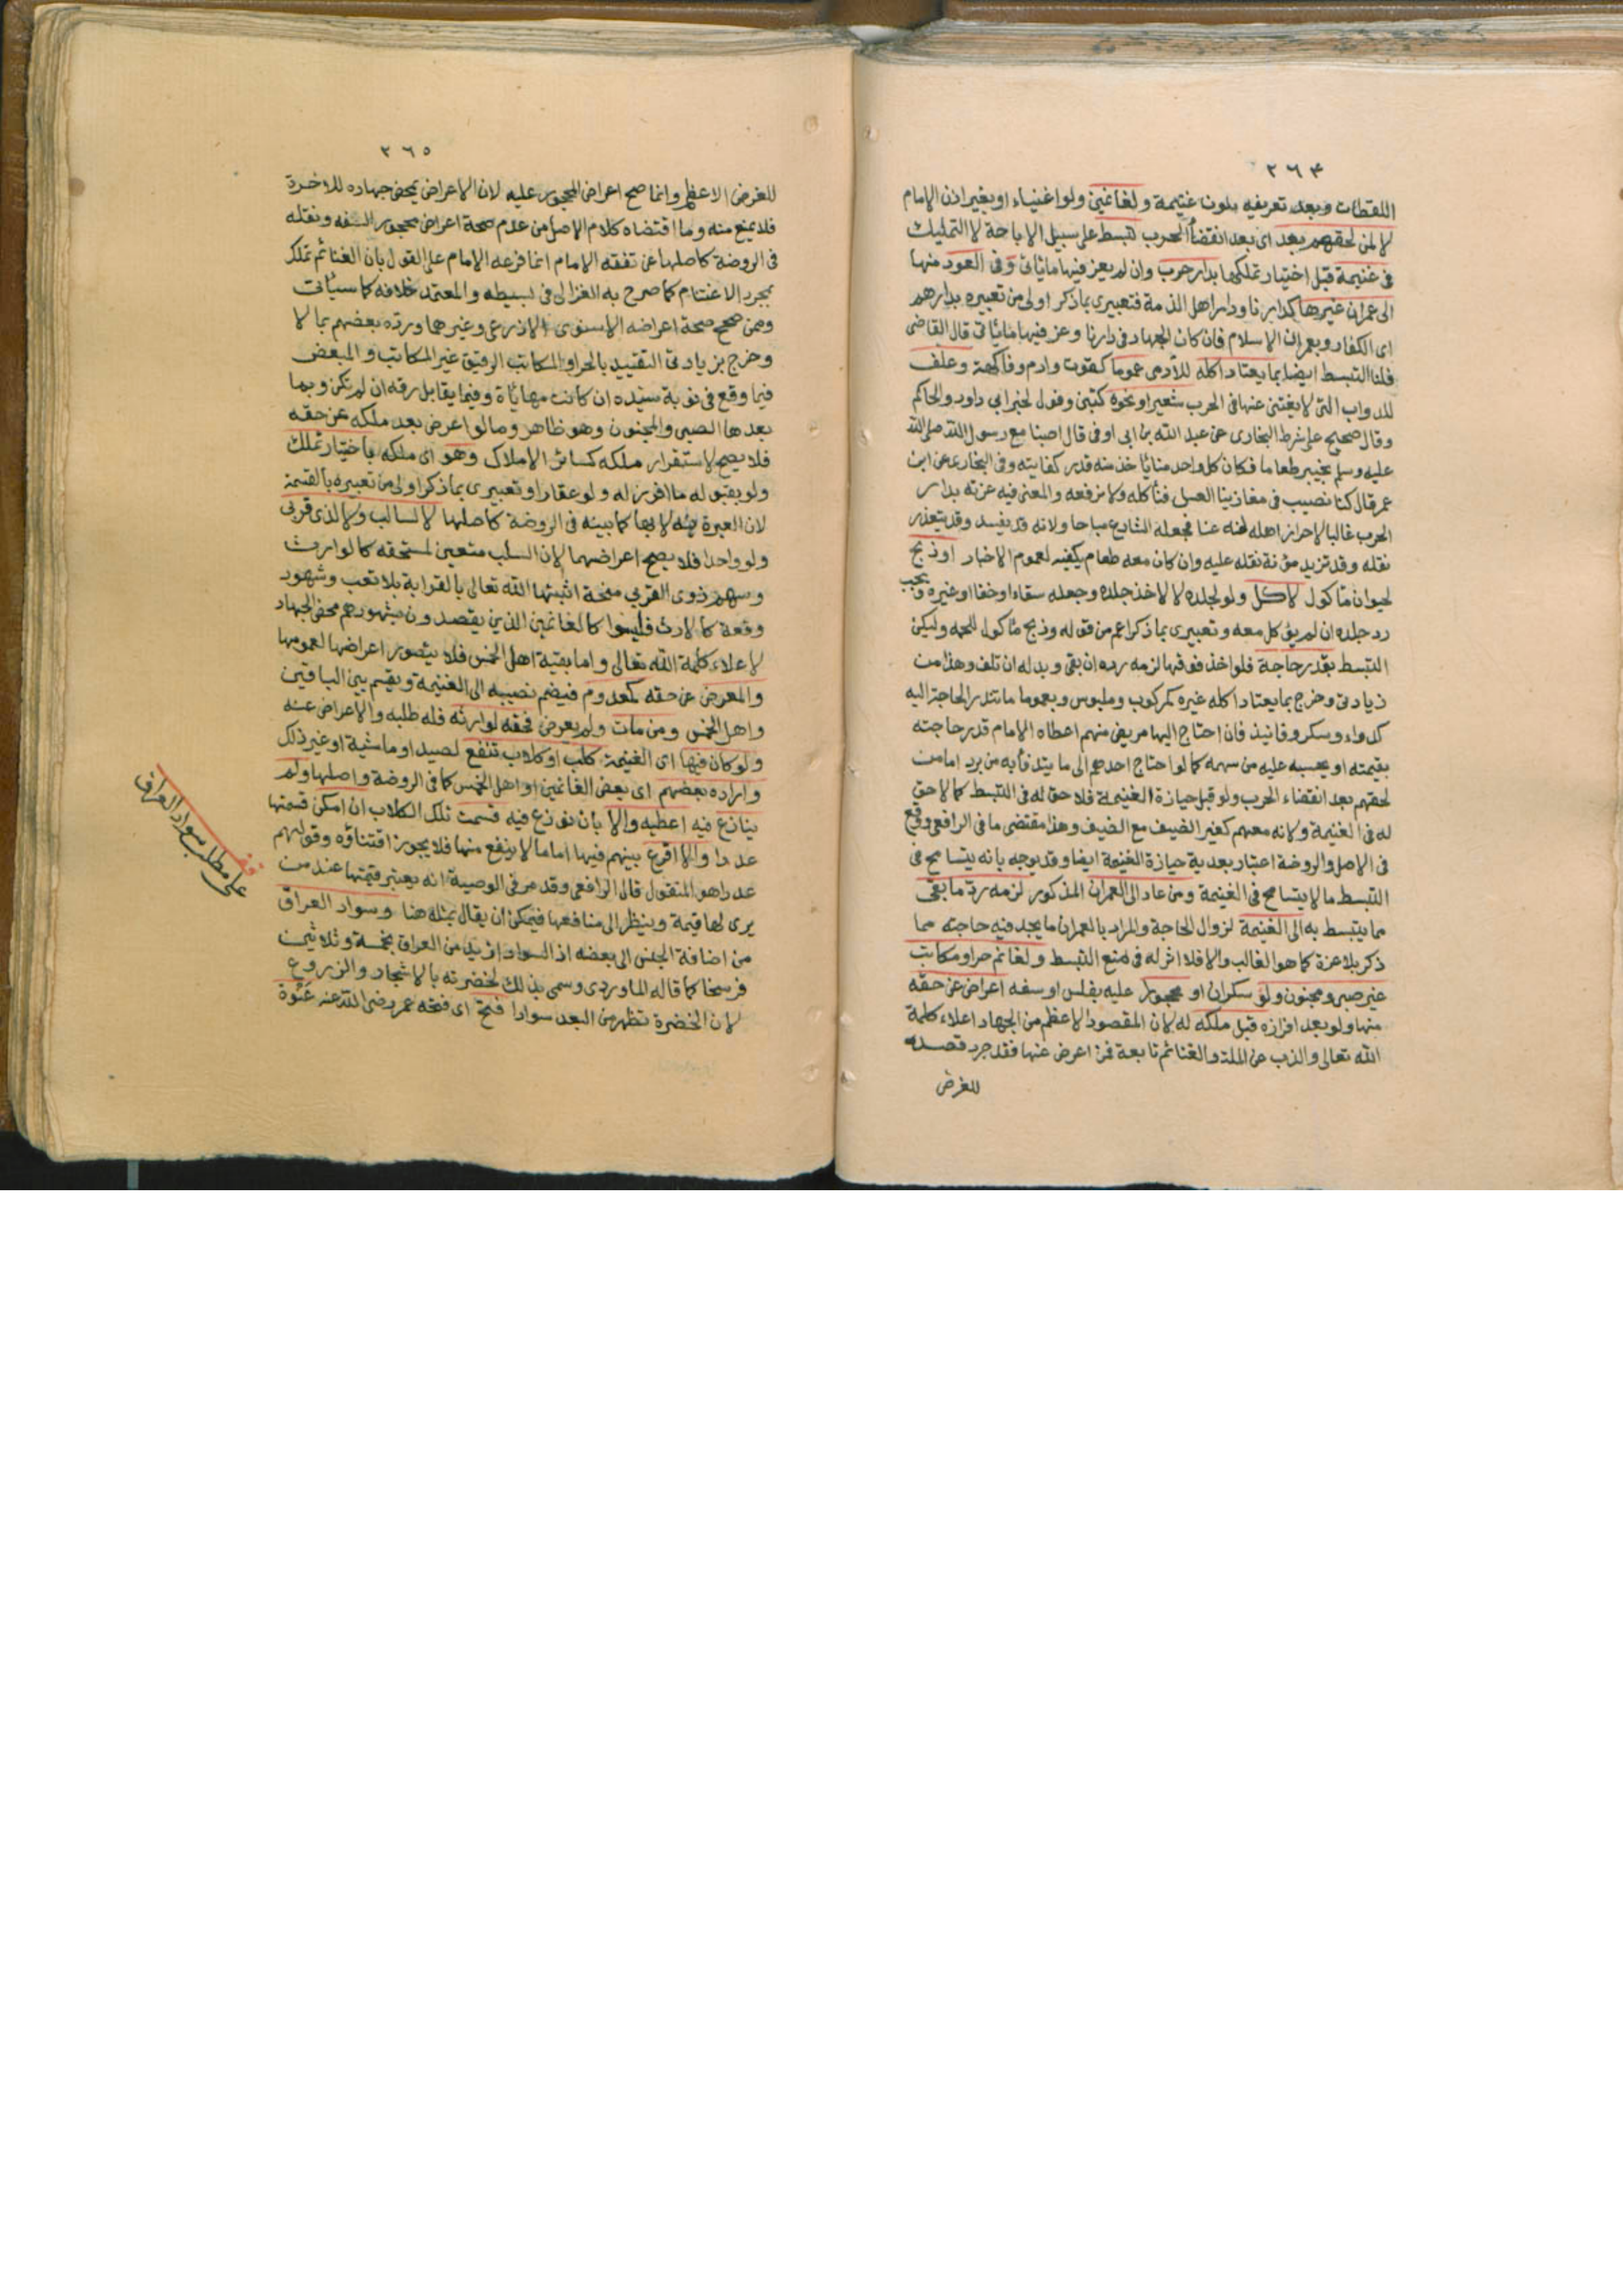 ٢٦٤
اللقطات وبعد تعريفه يكون غنيمة ولغانمين ولو اغنياء او بغير اذن الامام
لا لمن لحقهم بعد اى بعد انقضاء الحرب تبسط على سبيل الاباحة لا التمليك
فى غنيمة قبل اختيار تملكها بدار حرب وان لم يعز فيها ماياتى وفى العود منها
الى عمران غيرها كدارنا ودار اهل الذمة فتعبيرى بما ذكر اولى من تعبيره بدارهم
اى الكفار وبعمران الاسلام فان كان الجهاد فى دارنا وعز فيها ماياتى قال القاضى
فلنا التبسط ايضا بما يعتاد اكله للآدمى عموما كقوت وادم وفاكهة وعلف
للدواب التى لا يغتنى عنها فى الحرب شعيرا ونحوه كتبن وفول لخبر ابى داود والحاكم
وقال صحيح على شرط البخارى عن عبد الله بن ابى اوفى قال اصبنا مع رسول الله صلى الله
عليه وسلم بخيبر طعاما فكان كل واحد منا ياخذ منه قدر كفايته وفى البخارى عن ابن
عمر قال كنا نصيب فى مغازينا العسل فنأكله ولا نرفعه والمعنى فيه عزته بدار
الحرب غالبا لاحراز اهله له عنا فجعله الشارع مباحا ولانه قد يفسد وقد يتعذر
نقله وقد تزيد مؤنة نقله عليه وان كان معه طعام يكفيه لعموم الاخبار وذبح
لحيوان مأكول لاكل ولو لجلده لا لاخذ جلده وجعله سقاء او خفا او غيره ويجب
رد جلده ان لم يؤكل معه وتعبيرى بما ذكر اعم من قوله وذبح مأكول للحمه وليكن
التبسط بقدر حاجة فلو اخذ فوقها لزمه رده ان بقى وبدله ان تلف وهذا من
زيادتى وخرج بما يعتاد اكله غيره كمركوب وملبوس وبعموما ما تندر الحاجة اليه
كدواء وسكر وفانيذ فان احتاج اليها مريض منهم اعطاه الامام قدر حاجته
بقيمته او يحسبه عليه من سهمه كما لو احتاج احدهم الى ما يتدفأ به من برد اما من
لحقهم بعد انقضاء الحرب ولو قبل حيازة الغنيمة فلا حق له فى التبسط كما لا حق
له فى الغنيمة ولانه معهم كغير الضيف مع الضيف وهذا مقتضى ما فى الرافعى ووقع
فى الاصل والروضة اعتبار بعدية حيازة الغنيمة ايضا وقد يوجه بانه يتسامح فى
التبسط ما لا يتسامح فى الغنيمة ومن عاد الى العمران المذكور لزمه رد ما بقى
مما يتبسط به الى الغنيمة لزوال الحاجة والمراد بالعمران ما يجد فيه حاجته مما
ذكر بلا عزة كما هو الغالب والا فلا اثر له فى منع التبسط ولغانم حر او مكاتب
غير صبى ومجنون ولو سكران او محجورا عليه بفلس او سفه اعراض عن حقه
منها ولو بعد افرازه قبل ملكه له لان المقصود الاعظم من الجهاد اعلاء كلمة
الله تعالى والذب عن الملة والغنائم تابعة فمن اعرض عنها فقد جرد قصده
للغرض
٢٦٥
للغرض الاعظم وانما صح اعراض المحجور عليه لان الاعراض يمحض جهاده للاخرة
فلا يمنع منه وما اقتضاه كلام الاصل من عدم صحة اعراض محجور السفه ونقله
فى الروضة كاصلها عن تفقه الامام انما فرعه الامام على القول بان الغنائم تملك
بمجرد الاغتنام كما صرح به الغزالى فى بسيطه والمعتمد خلافه كما سياتى
وممن صحح صحة اعراضه الاسنوى والاذرعى وغيرهما ورده بعضهم بما لا
وخرج بزيادتى التقييد بالحر او المكاتب الرقيق غير المكاتب والمبعض
فيما وقع فى نوبة سيده ان كانت مهايأة وفيما يقابل رقه ان لم تكن وبما
بعدها الصبى والمجنون وهو ظاهر وما لو اعرض بعد ملكه عن حقه
فلا يصح لاستقرار ملكه كسائر الاملاك وهو اى ملكه باختيار تملك
ولو بقبوله ما افرز له ولو عقارا وتعبيرى بما ذكر اولى من تعبيره بالقسمة
لان العبرة به لا بها كما بينه فى الروضة كاصلها لا لسالب ولا لذى قربى
ولو واحدا فلا يصح اعراضهما لان السلب متعين لمستحقه كالوارث
وسهم ذوى القربى منحة اثبتها الله تعالى بالقرابة بلا تعب وشهود
وقعة كالارث فليسوا كالغانمين الذين يقصدون بشهودهم محض الجهاد
لاعلاء كلمة الله تعالى واما بقية اهل الخمس فلا يتصور اعراضها لعمومها
والمعرض عن حقه كمعدوم فيضم نصيبه الى الغنيمة ويقسم بين الباقين
واهل الخمس ومن مات ولم يعرض فحقه لوارثه فله طلبه والاعراض عنه
ولو كان فيها اى الغنيمة كلب او كلاب تنفع لصيد او ماشية او غير ذلك
واراده بعضهم اى بعض الغانمين او اهل الخمس كما فى الروضة واصلها ولم
ينازع فيه اعطيه والا بان نوزع فيه قسمت تلك الكلاب ان امكن قسمتها
عددا والا اقرع بينهم فيها اما ما لا ينفع منها فلا يجوز اقتناؤه وقولهم
عددا هو المنقول قال الرافعى وقد مر فى الوصية انه يعتبر قيمتها عند من
يرى لها قيمة وينظر الى منافعها فيمكن ان يقال بمثله هنا وسواد العراق
من اضافة الجنس الى بعضه اذ السواد ازيد من العراق بخمسة وثلاثين
فرسخا كما قاله الماوردى وسمى بذلك لخضرته بالاشجار والزروع
لان الخضرة تظهر من البعد سوادا فتح اى فتحه عمر رضى الله عنه عَنْوَة
قف
على مطلب سواد العراق